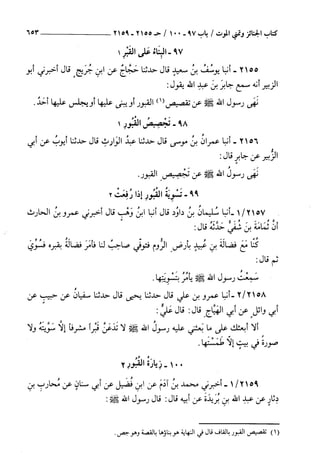 كتاب الجنائز وتمني الموت / باب ٩٧ - ١٠٠ / حـ ٢١٥٥ - ٢١٥٩ ٦٥٣
٩٧ - البناءُ على القبر ١
٢١٥٥ - أنبا يوسُفُ بنُ سعيدٍ قال حدثنا حجَّاجٌ عن ابنِ جُريجٍ قال أخبرني أبو
الزبير أنه سمع جابرَ بنَ عبدِ اللهِ يقول:
نَهَى رسول الله ﷺ عن تقصيص (١) القبور أو يبنى عليها أو يجلس عليها أحد.
٩٨ - تجصيصُ القُبُورِ ١
٢١٥٦ - أنبا عمرانُ بنُ موسى قال حدثنا عبدُ الوارثِ قال حدثنا أيوبُ عن أبي
الزُّبير عن جابرٍ قال:
نَهَى رسولُ الله ﷺ عن تَجْصِيصِ القبور.
٩٩ - تسويةُ القُبُورِ إذا رُفِعَتْ ٢
٢١٥٧/١ - أنبا سُليمانُ بنُ داوُد قال أنبا ابنُ وَهْبٍ قال أخبرني عمرو بنُ الحارث
أنَّ ثُمامةَ بنَ شُفَيٍّ حَدَّثَهُ قال:
كُنَّا مَعَ فَضالَةَ بنِ عُبيدٍ بأرضِ الرُّوم فتوفي صاحبٌ لنا فأمَرَ فَضالَةُ بقبره فَسُوِّيَ
ثم قال:
سَمِعتُ رسول الله ﷺ يأمُرُ بتسويَتِها.
٢١٥٨/٢ - أنبا عمرو بن علي قال حدثنا يحيى قال حدثنا سفيانُ عن حبيبٍ عن
أبي وائلٍ عن أبي الهيَّاجِ قال: قال عليٌّ:
ألا أبعثك على ما بَعثَني عليه رسولُ الله ﷺ لا تَدَعَنَّ قَبْراً مشرفاً إلَّا سَوَّيتَهُ ولا
صورةً في بيتٍ إلَّا طَمَسْتَها.
١٠٠ - زيارةُ القُبُورِ ٢
٢١٥٩/١ - أخبرني محمد بنُ آدَمَ عن ابنِ فُضيلٍ عن أبي سنانٍ عن مُحاربِ بنِ
دِثارٍ عن عبد الله بنِ بُريدَةَ عن أبيه قال: قال رسول الله ﷺ:
(١) تقصيص القبور بالقاف قال في النهاية هو بناؤها بالقصة وهو جص.